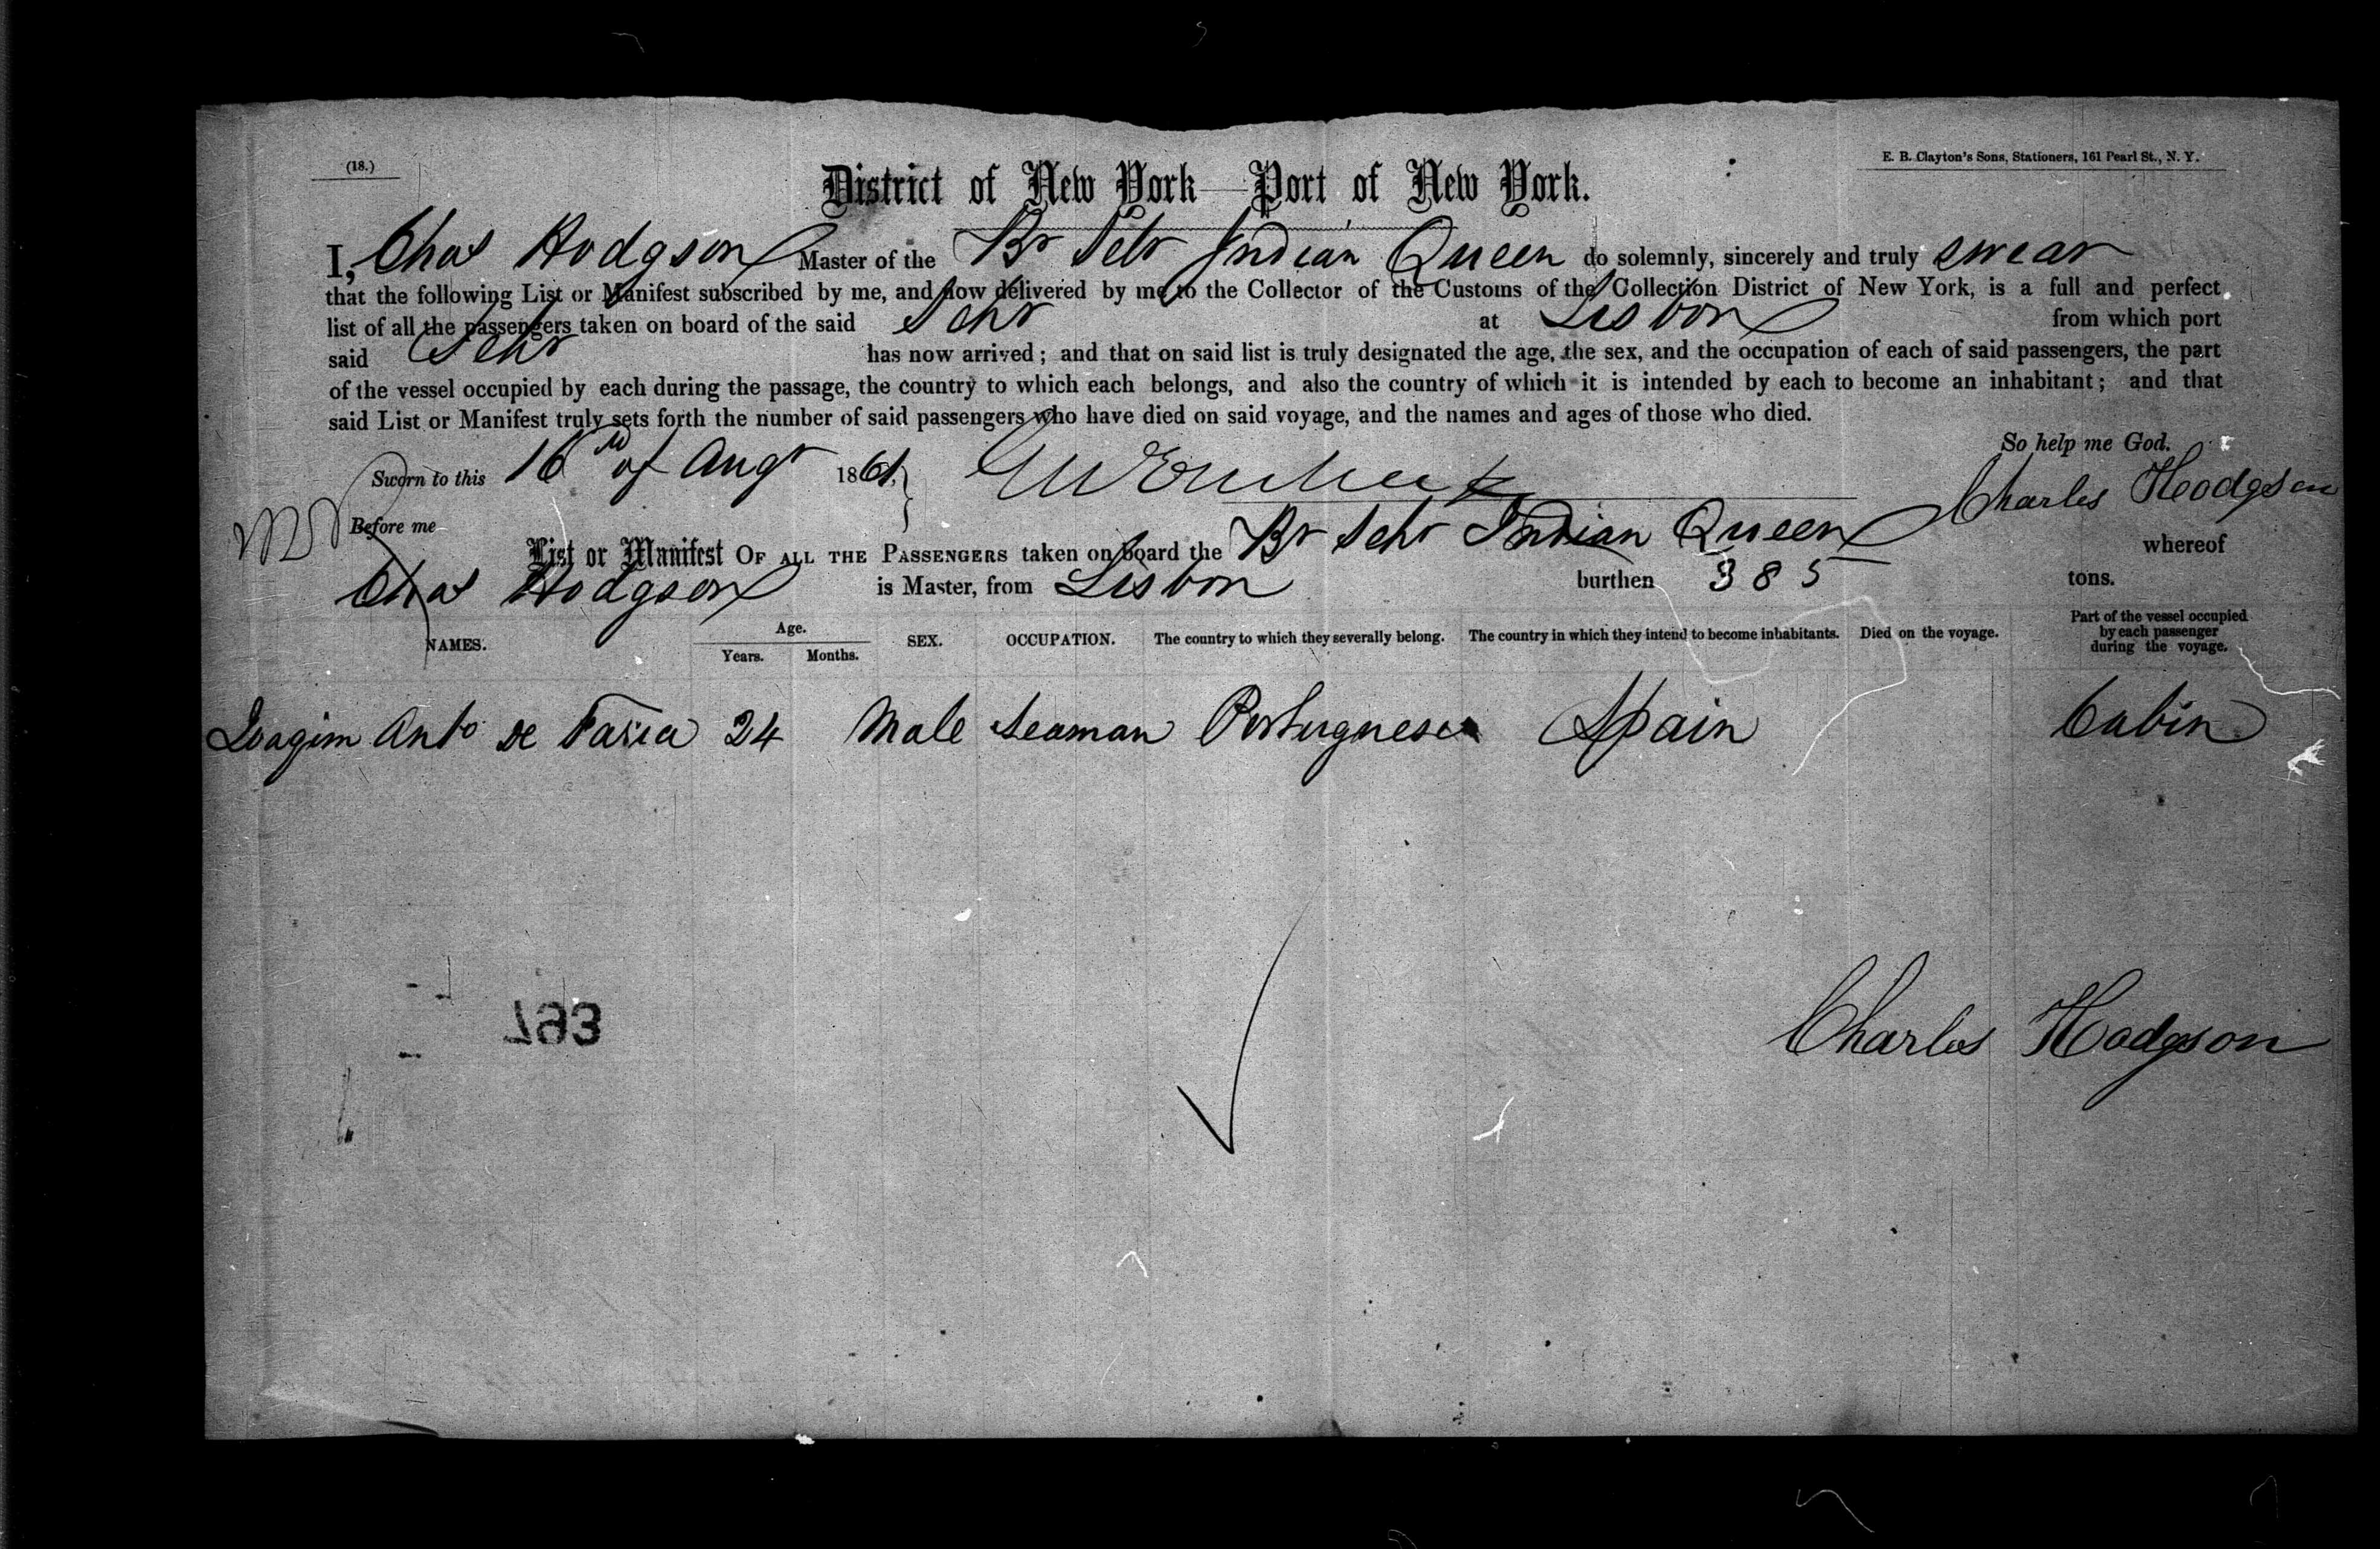 (18.)
E. B. Clayton's Sons, Stationers, 161 Pearl St., N. Y.
District of New York—Port of New York.
I, Chas Hodgson Master of the Br Schr Indian Queen do solemnly, sincerely and truly swear
that the following List or Manifest subscribed by me, and now delivered by me to the Collector of the Customs of the Collection District of New York, is a full and perfect
list of all the passengers taken on board of the said Schr at Lisbon from which port
said Schr has now arrived; and that on said list is truly designated the age, the sex, and the occupation of each of said passengers, the part
of the vessel occupied by each during the passage, the country to which each belongs, and also the country of which it is intended by each to become an inhabitant; and that
said List or Manifest truly sets forth the number of said passengers who have died on said voyage, and the names and ages of those who died.
So help me God.
Sworn to this 16 of Augt 1861,
Charles Hodgson
Before me
List or Manifest OF ALL THE PASSENGERS taken on board the Br Schr Indian Queen whereof
Chas Hodgson is Master, from Lisbon burthen 385 tons.
NAMES. Age. Years. Months. SEX. OCCUPATION. The country to which they severally belong. The country in which they intend to become inhabitants. Died on the voyage. Part of the vessel occupied by each passenger during the voyage.
Joagim Anto de Faria 24 Male Seaman Portuguese Spain Cabin
793
Charles Hodgson